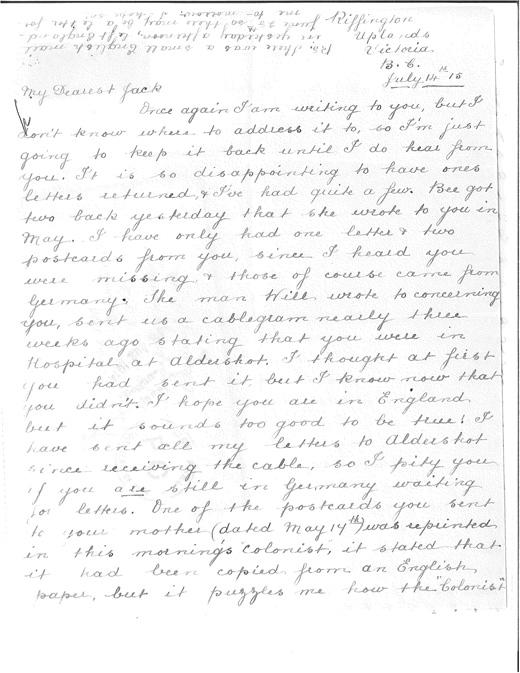 Riffington
Uplands
Victoria.
B.C.
July 14th 15
P.s. There was a small English mail
in yesterday afternoon, left England
June 27th so there may be a letter for
me to-morrow.
My Dearest Jack
Once again I am writing to you, but I
don't know where to address it to, so I'm just
going to keep it back until I do hear from
you. It is so disappointing to have ones
letters returned, & I've had quite a few. Bee got
two back yesterday that she wrote to you in
May. I have only had one letter & two
postcards from you, since I heard you
were missing, & those of course came from
Germany. The man Will wrote to concerning
you, sent us a cablegram nearly three
weeks ago stating that you were in
Hospital at Aldershot. I thought at first
you had sent it, but I know now that
you didn't. I hope you are in England
but it sounds too good to be true! I
have sent all my letters to Aldershot
since receiving the cable, so I pity you
if you are still in Germany waiting
for letters. One of the postcards you sent
to your mother (dated May 14th) was reprinted
in this morning's Colonist, it stated that
it had been copied from an English
paper, but it puzzles me how the "Colonist"